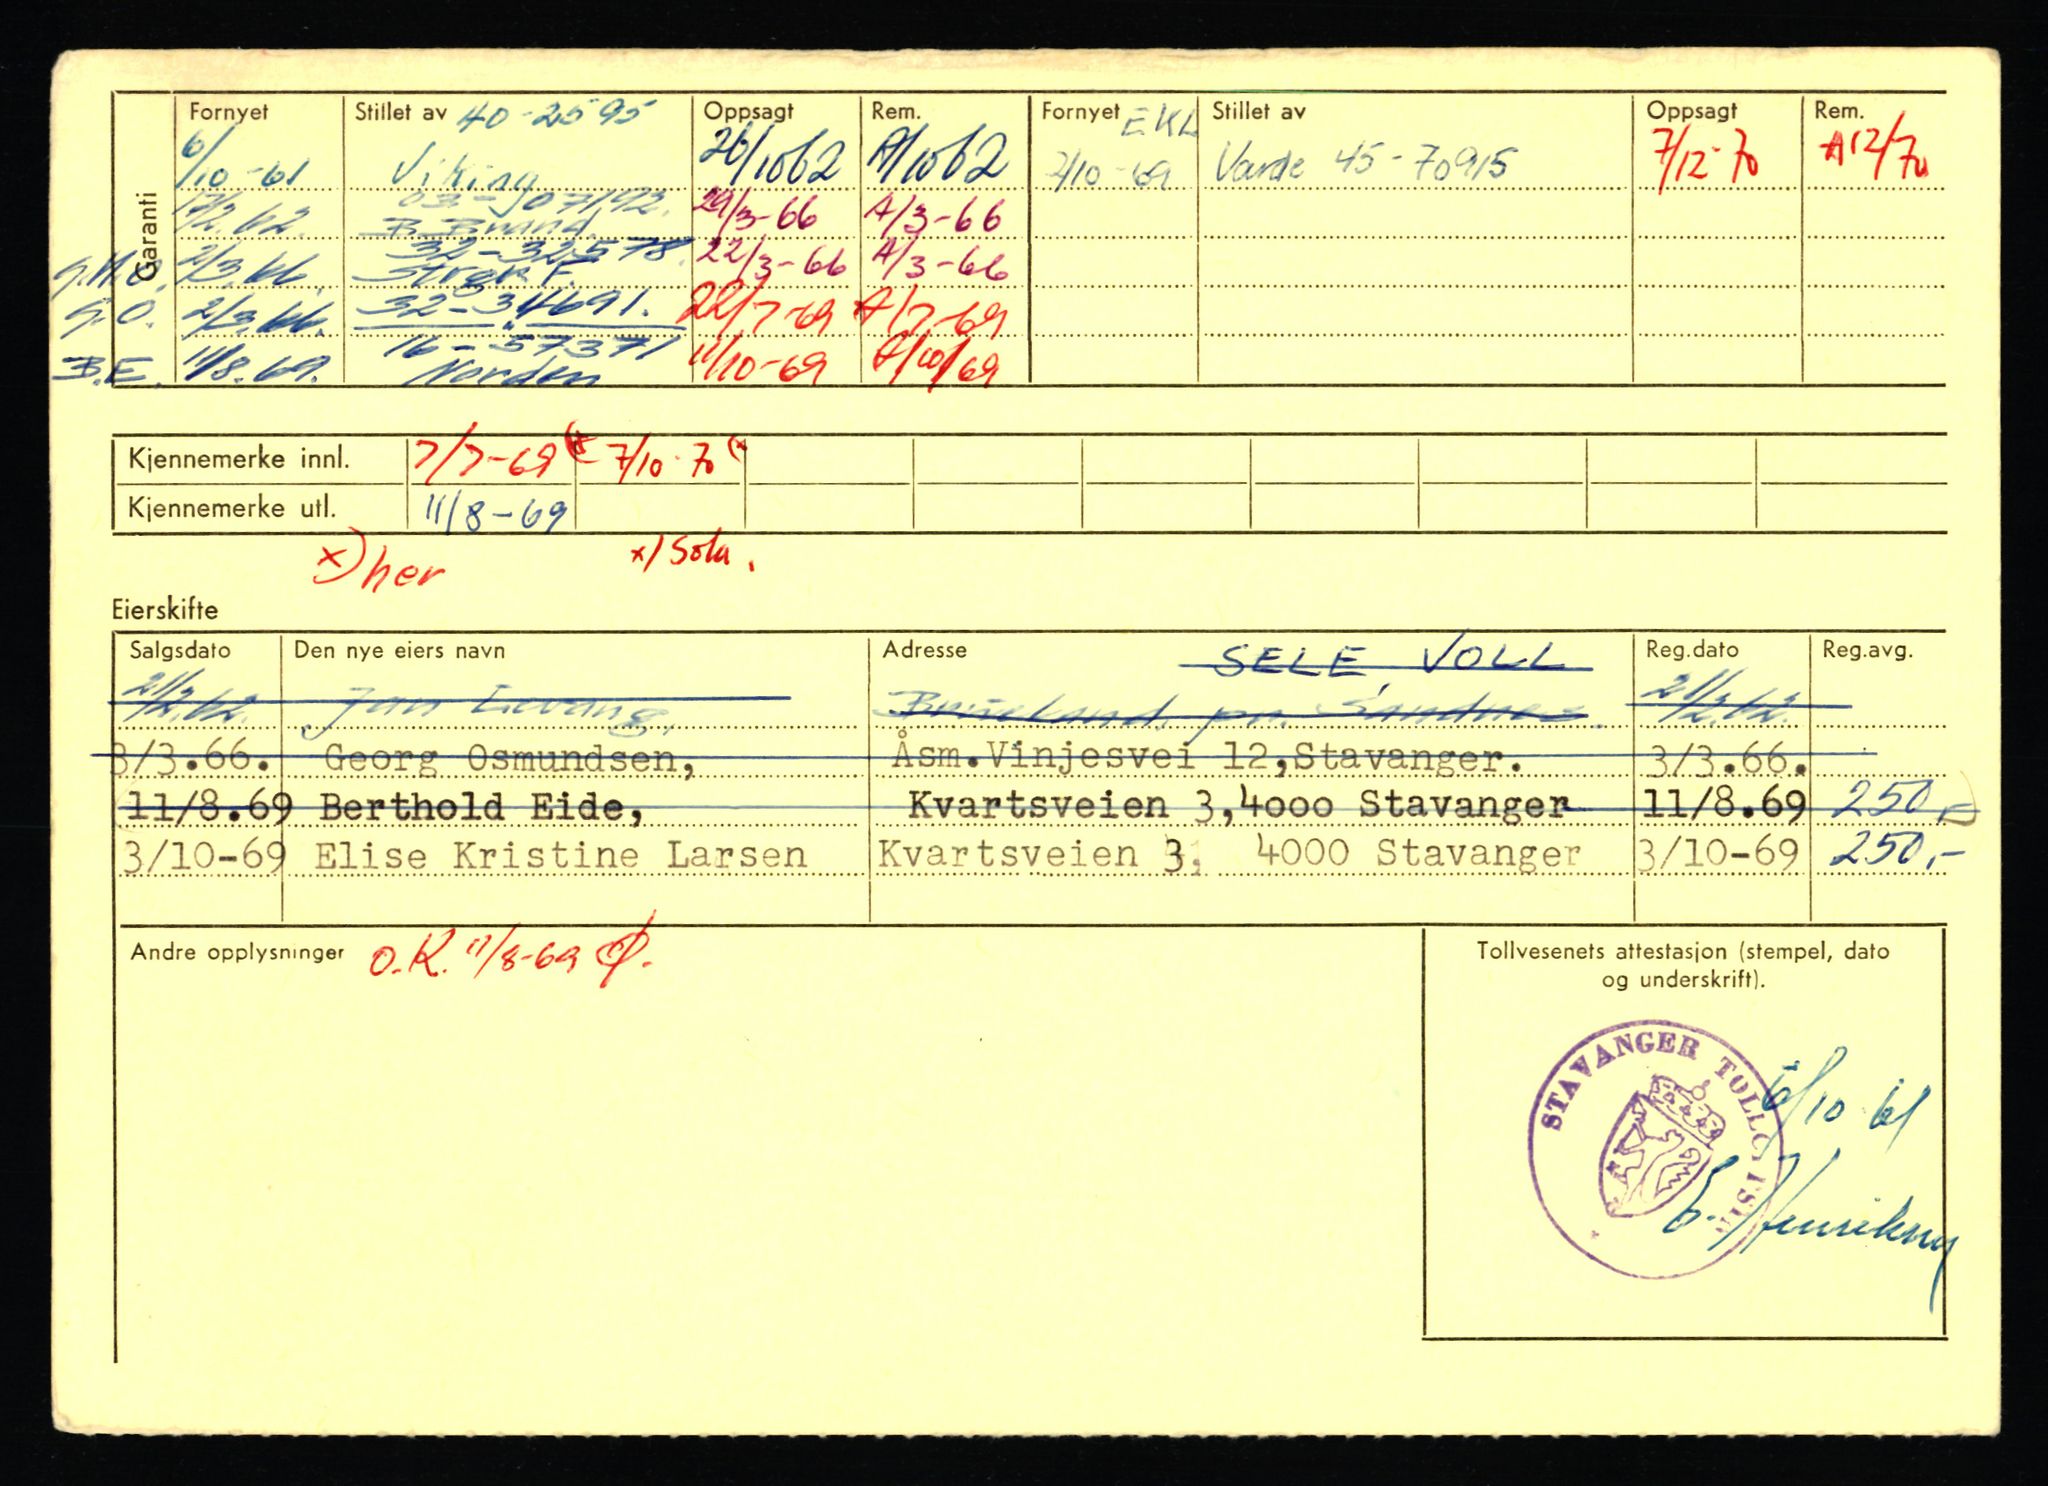 Garanti
Fornyet Stillet av 40-2595 Oppsagt Rem. Fornyet EKL Stillet av Oppsagt Rem.
6/10-61 Viking 26/10 62 A/10 62 2/10-69 Varde 45-70915 7/12-70 A 12/70
03-107192.
17/2.62. B. Brand. 29/3-66 A/3-66
32-32578.
2/3.66. 22/3-66 A/3-66
G.O. 2/3.66. 32-34691. 22/7-69 A/7-69
16-57371
B.E. 11/8.69. Norden 11/10-69 A/10/69
Kjennemerke innl. 7/7-69 (x 7/10-70 (x
Kjennemerke utl. 11/8-69
x) her x) Sola.
Eierskifte
Salgsdato Den nye eiers navn Adresse SELE, VOLL Reg.dato Reg.avg.
21/2.62. Jan 21/2.62.
3/3.66. Georg Osmundsen, Åsm.Vinjesvei 12,Stavanger. 3/3.66.
11/8.69 Berthold Eide, Kvartsveien 3,4000 Stavanger 11/8.69 250,-
3/10-69 Elise Kristine Larsen Kvartsveien 3, 4000 Stavanger 3/10-69 250,-
Andre opplysninger O.K. 11/8-69 Ø.
Tollvesenets attestasjon (stempel, dato
og underskrift).
STAVANGER
6/10 61
E. Henriksen